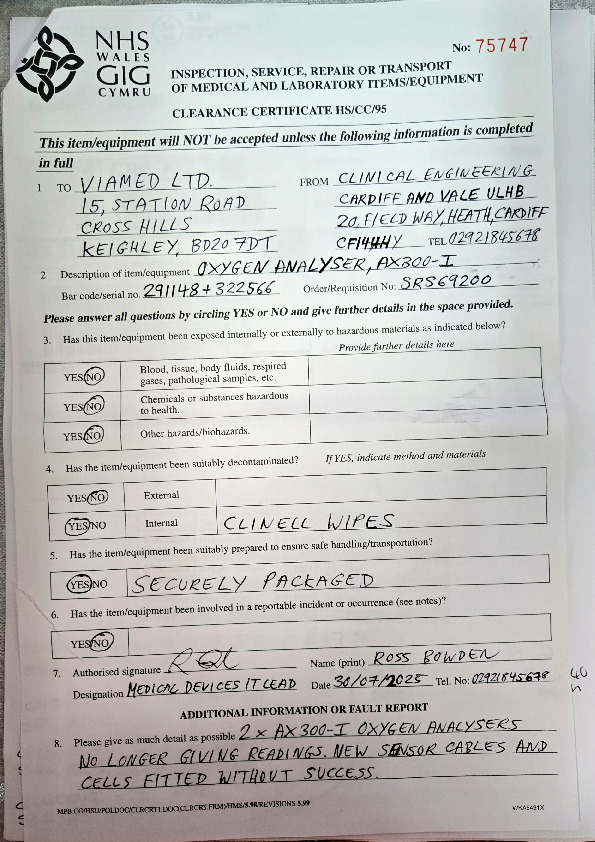 NHS
WALES
GIG
CYMRU
No: 75747
INSPECTION, SERVICE, REPAIR OR TRANSPORT
OF MEDICAL AND LABORATORY ITEMS/EQUIPMENT
CLEARANCE CERTIFICATE HS/CC/95
This item/equipment will NOT be accepted unless the following information is completed
in full
1 TO VIAMED LTD. FROM CLINICAL ENGINEERING
15, STATION ROAD CARDIFF AND VALE ULHB
CROSS HILLS 20, FIELD WAY, HEATH, CARDIFF
KEIGHLEY, BD20 7DT CF14 TEL 02921845678
2 Description of item/equipment OXYGEN ANALYSER, AX300-I
Bar code/serial no. 291148 + 322566 Order/Requisition No: SRS69200
Please answer all questions by circling YES or NO and give further details in the space provided.
3. Has this item/equipment been exposed internally or externally to hazardous materials as indicated below?
Provide further details here
YES/NO Blood, tissue, body fluids, respired
gases, pathological samples, etc.
YES/NO Chemicals or substances hazardous
to health.
YES/NO Other hazards/biohazards.
4. Has the item/equipment been suitably decontaminated? If YES, indicate method and materials
YES/NO External
YES/NO Internal CLINELL WIPES
5. Has the item/equipment been suitably prepared to ensure safe handling/transportation?
YES/NO SECURELY PACKAGED
6. Has the item/equipment been involved in a reportable incident or occurrence (see notes)?
YES/NO
7. Authorised signature Name (print) ROSS BOWDEN
Designation MEDICAL DEVICES IT LEAD Date 30/07/2025 Tel. No: 02921845678
ADDITIONAL INFORMATION OR FAULT REPORT
8. Please give as much detail as possible 2 x AX300-I OXYGEN ANALYSERS
NO LONGER GIVING READINGS. NEW SENSOR CABLES AND
CELLS FITTED WITHOUT SUCCESS.
40